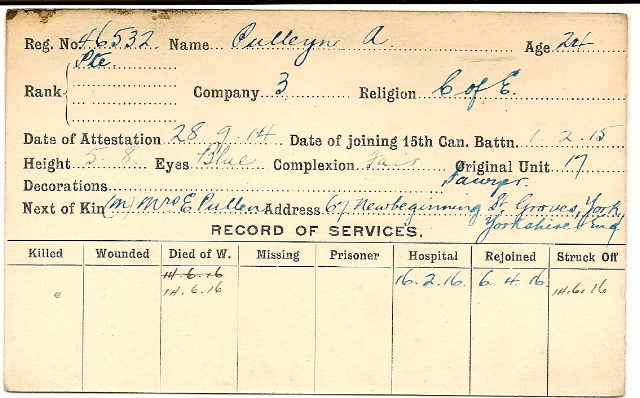 Reg. No. 46532 Name Pulleyn A. Age 24
Pte.
Rank Company 3 Religion C of E.
Date of Attestation 28 9 14 Date of joining 15th Can. Battn. 1 2 15
Height 5-8 Eyes Blue Complexion Fair Original Unit 17
Decorations
Next of Kin (M) Mrs E Pullen Address 67 Newbeginning St. Groves, York,
Yorkshire Eng
RECORD OF SERVICES.
Killed Wounded Died of W. Missing Prisoner Hospital Rejoined Struck Off
14.6.16 16.2.16. 6.4.16. 14.6.16
14.6.16